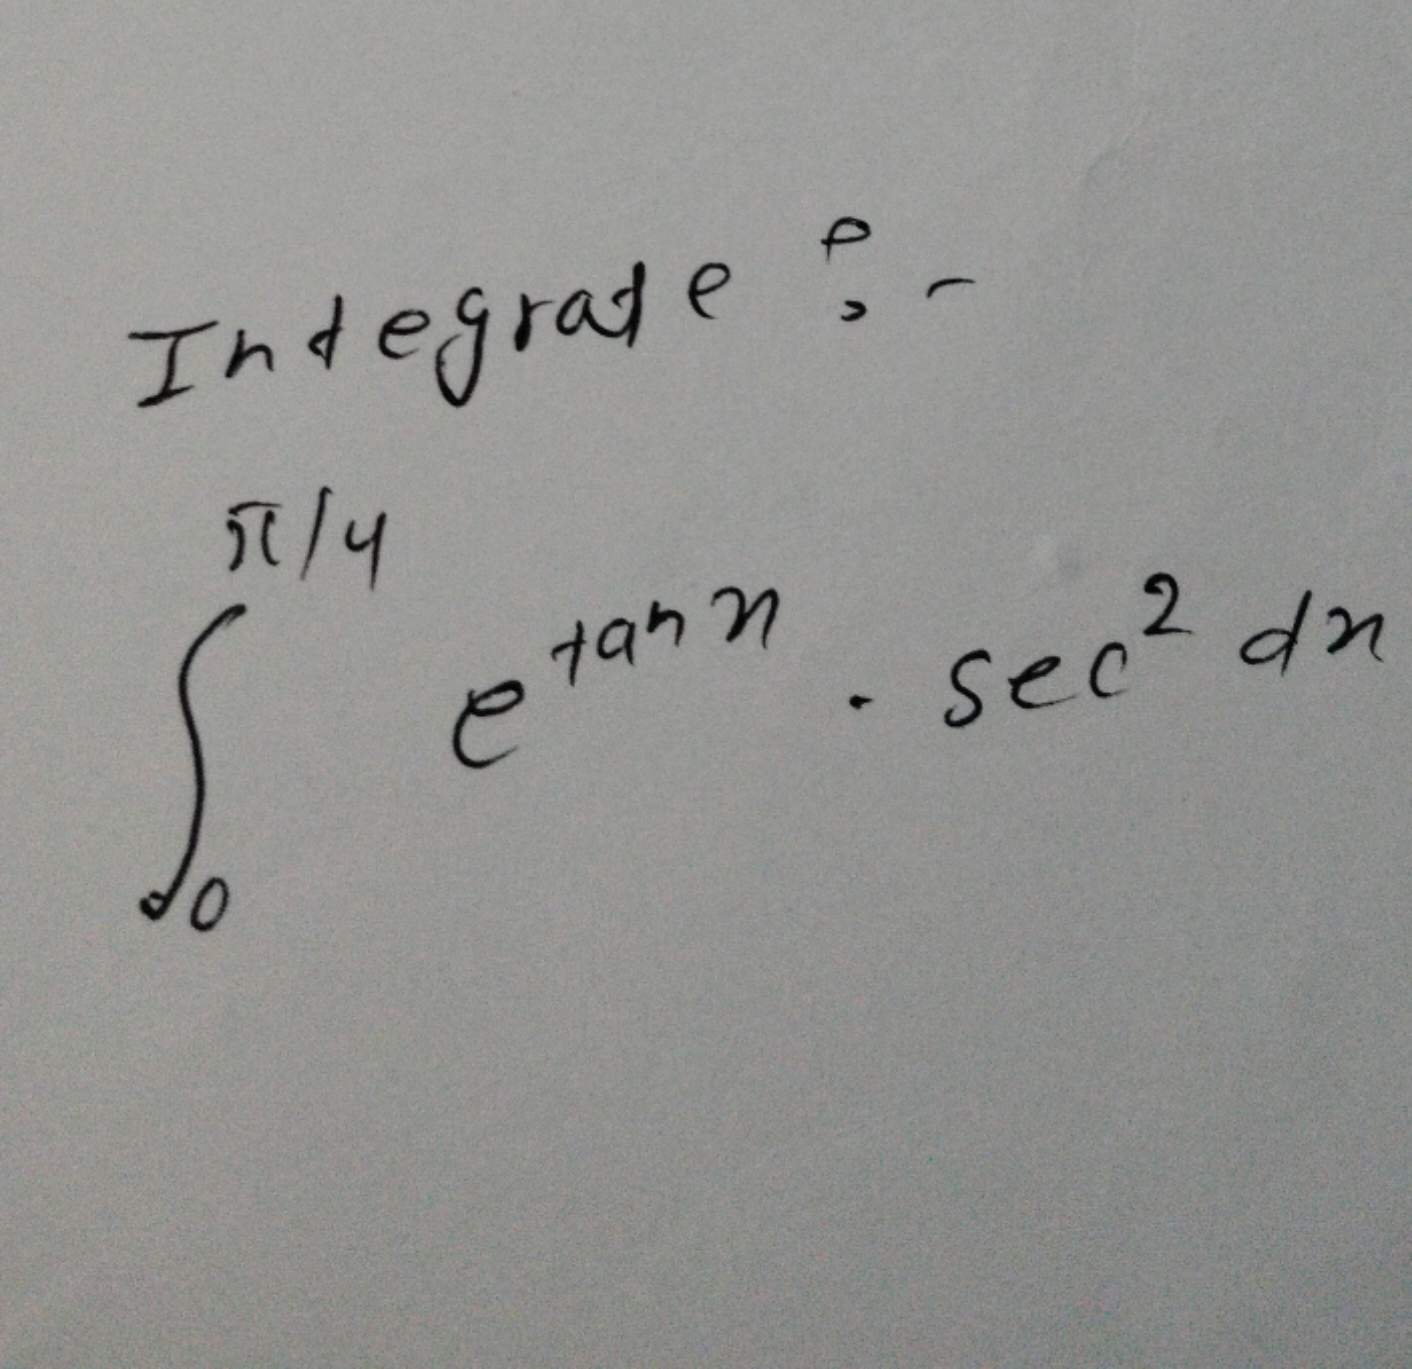 Integrate :-
π/4
∫ e^tan x . sec² dx
0